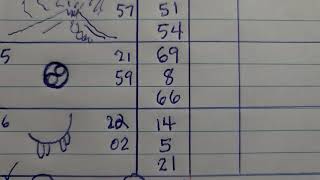 57 51
54
5 21 69
59 8
66
6 22 14
02 5
21